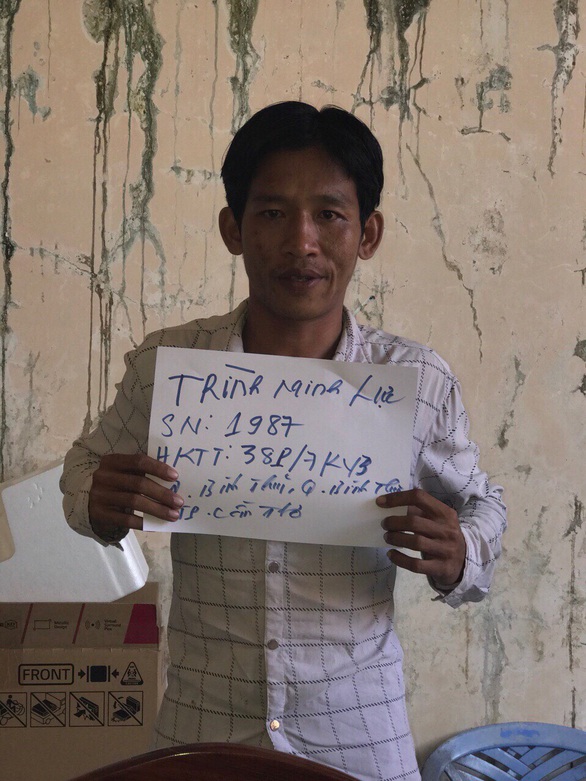 TRỊNH Minh Lực
SN: 1987
HKTT: 38P/7 KV3
P. Bình Thuỷ, Q. Bình Thuỷ
TP. Cần Thơ
FRONT